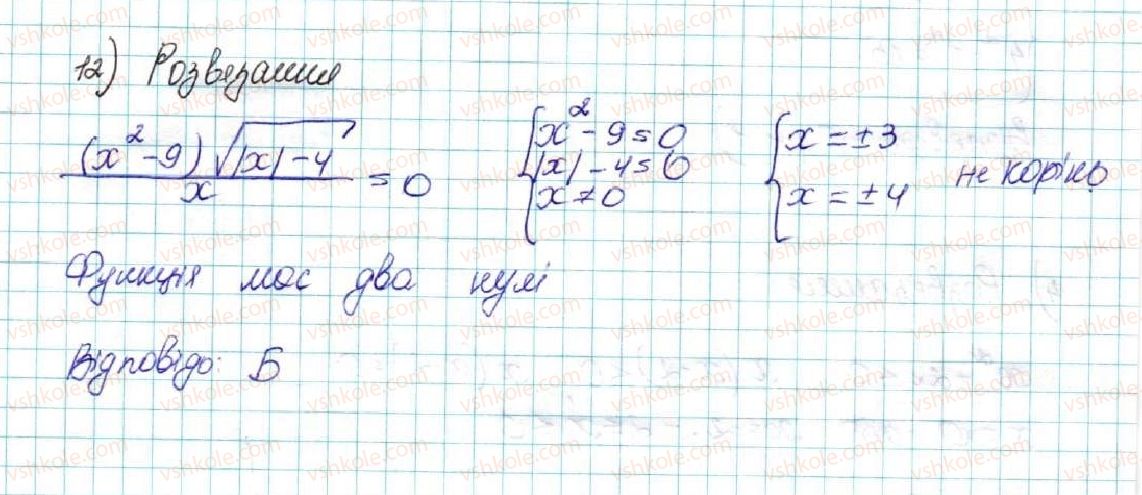 12) Розвязання
(x² - 9) √|x| - 4 / x = 0
{ x² - 9 = 0
|x| - 4 = 0
x ≠ 0
{ x = ±3
x = ±4 не корінь
Функція має два нулі
Відповідь: Б
vshkole.com